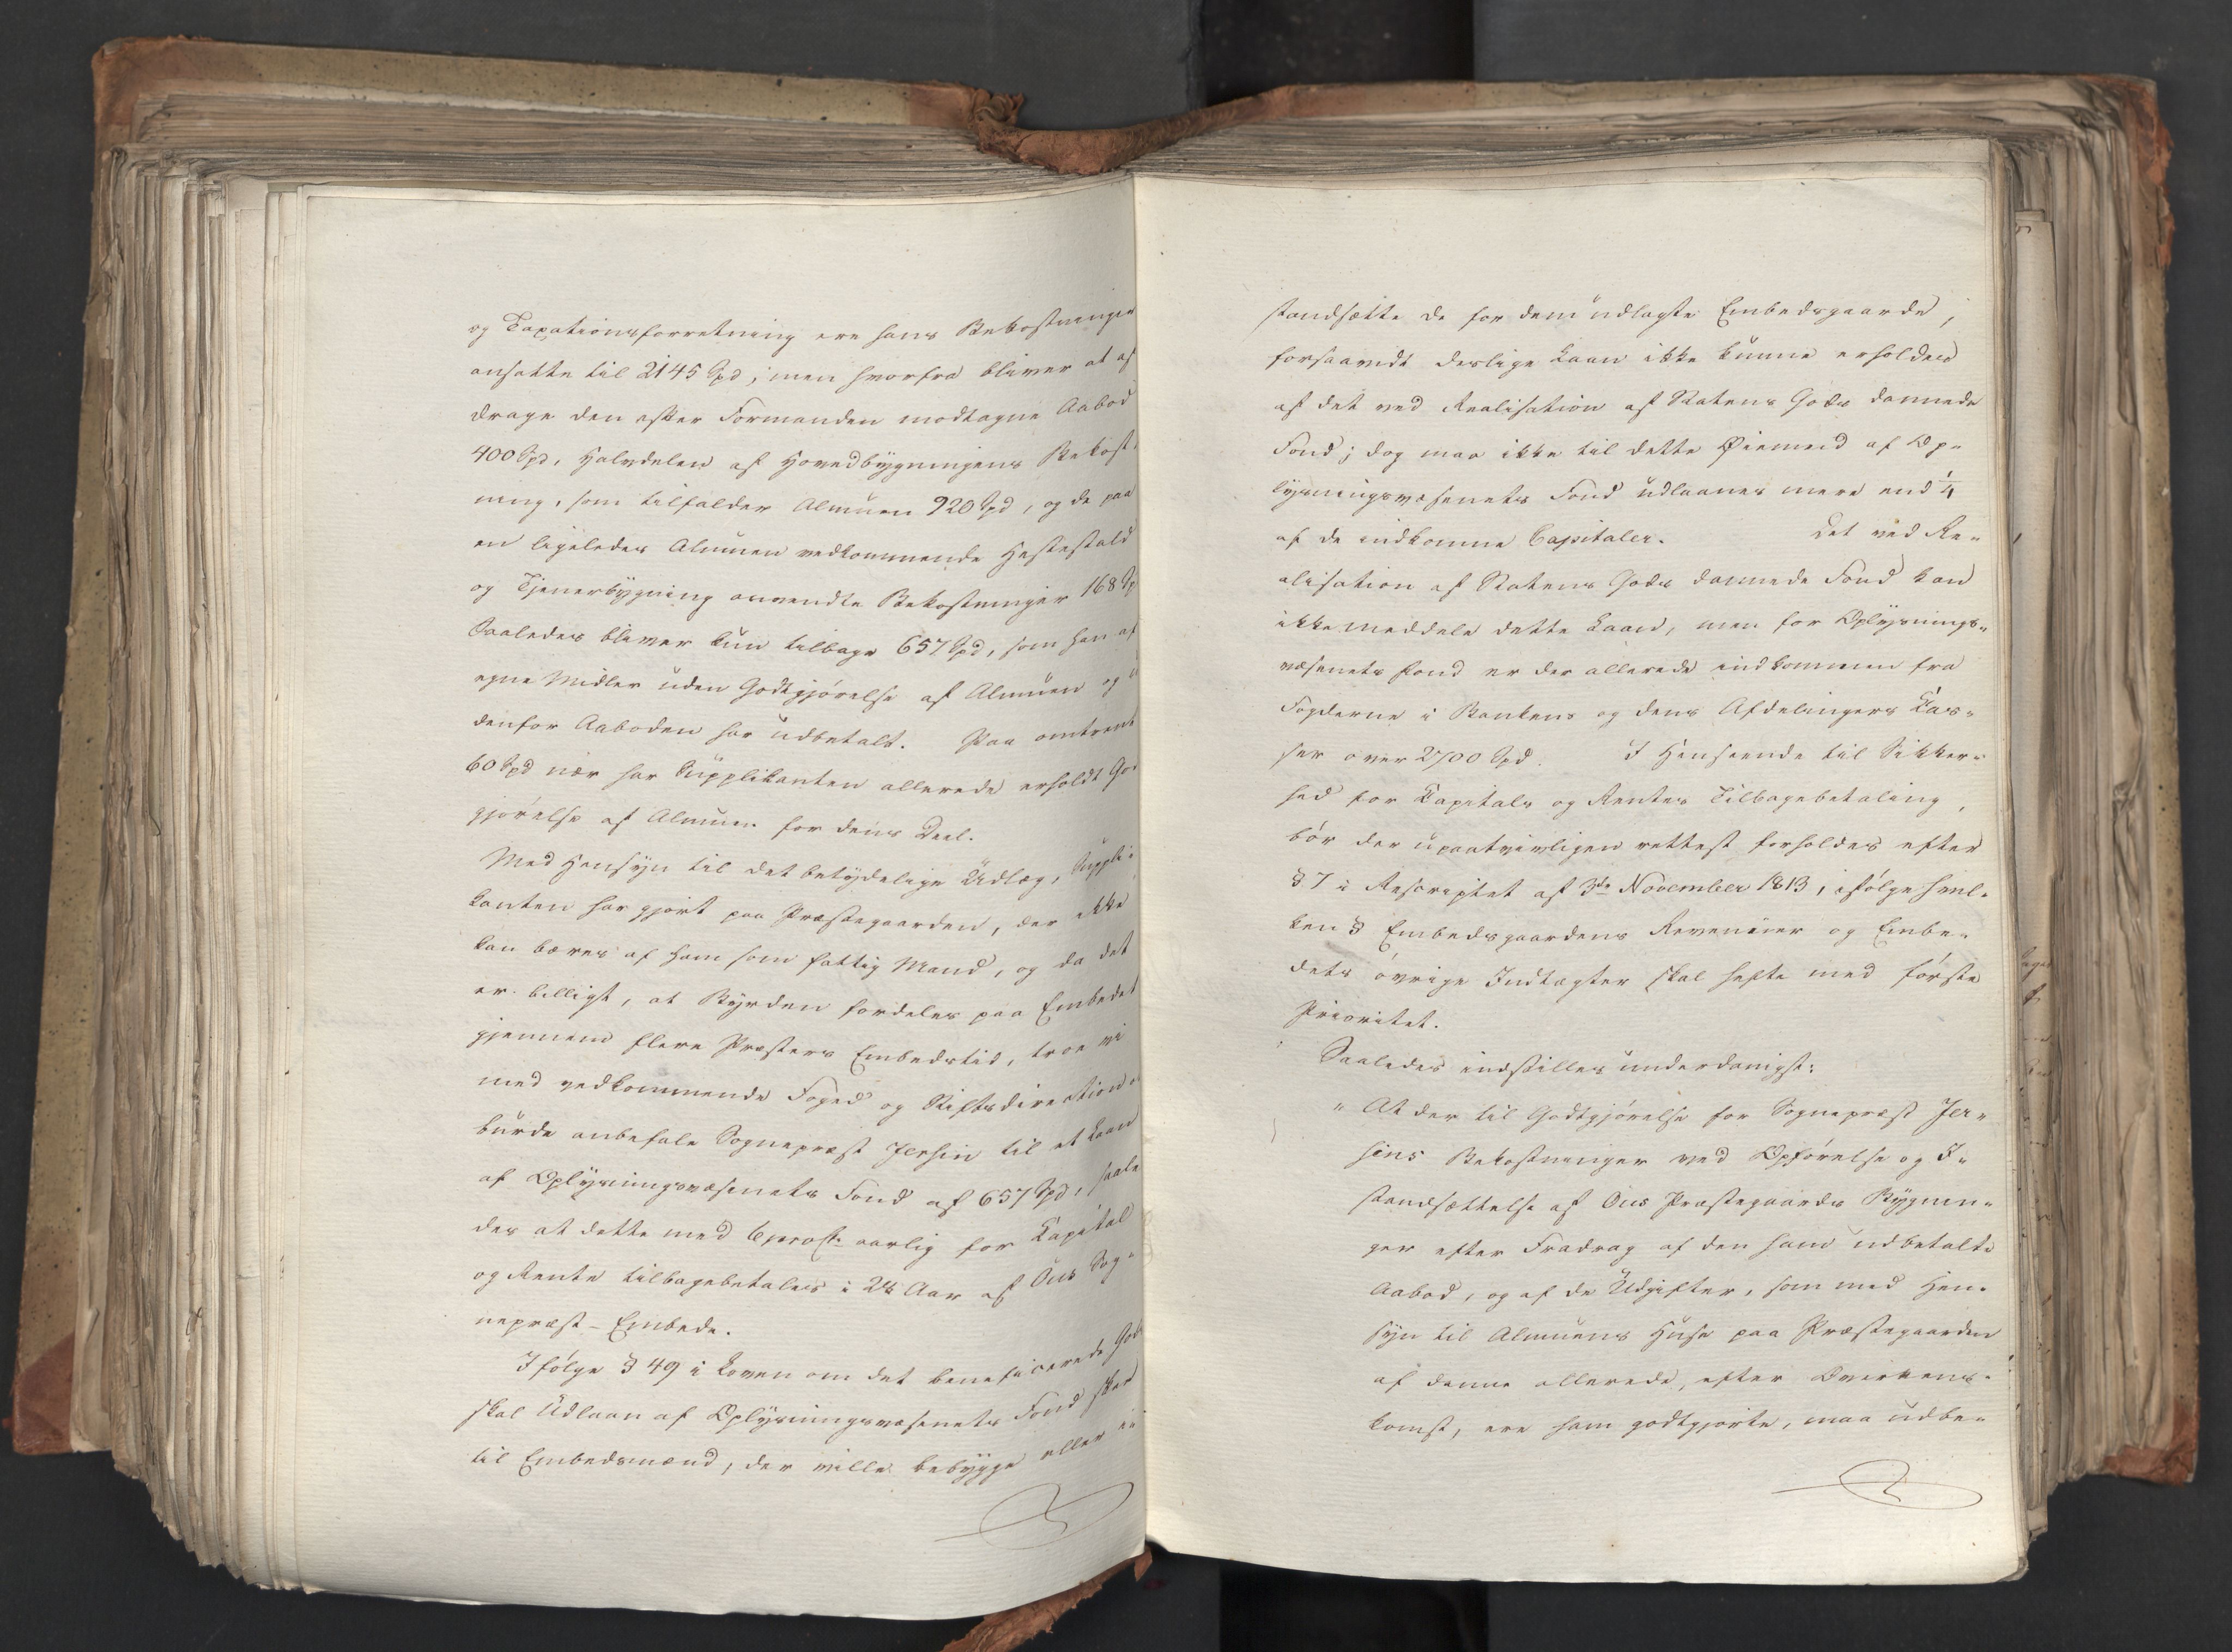 og Taxationsforretning ere hans Bekostninger
ansatte til 2145 Spd; men hvorfra bliver at af
drage den efter Formanden modtagne Aabod
400 Spd, Halvdelen af Hovedbygningens Bekost-
ning, som tilfalder Almuen 920 Spd, og de paa
en ligeledes Almuen vedkommende Hestestald
og Tjenerbygning anvendte Bekostninger 168 Sp
Saaledes bliver kun tilbage 657 Spd, som han af
egne Midler uden Godtgjørelse af Almuen og u
denfor Aaboden har udbetalt. Paa omtrent
60 Spd nær har Supplikanten allerede erholdt God
gjørelse af Almuen for dens Deel.
Med Hensyn til det betydelige Udlæg, Suppli-
kanten har gjort paa Præstegaarden, der ikke
kan bæres af ham som fattig Mand, og da det
er billigt, at Byrden fordeles paa Embedet
gjennem flere Præsters Embedstid, troe vi
med vedkommende Foged og Stiftsdirection at
burde anbefale Sognepræst Jersin til et Laan
af Oplysningsvæsenets Fond af 657 Spd, saale
des at dette med 6 procto aarlig for Kapital
og Rente tilbagebetales i 28 Aar af Øus Sog-
nepræst-Embede.
Ifølge § 49 i Loven om det beneficerede Gods
skal Udlaan af Oplysningsvæsenets Fond skee
til Embedsmænd, der ville bebygge eller i
standsætte de for dem udlagte Embedsgaarde,
forsaavidt deslige Laan ikke kunne erholdes
af det ved Realisation af Statens Gods dannede
Fond; dog maa ikke til dette Øiemed af Op-
lysningsvæsenets Fond udlaanes mere end 1/4
af de indkomne Capitaler. Det ved Re-
alisation af Statens Gods dannede Fond kan
ikke meddele dette Laan, men for Oplysnings-
væsenets Fond er der allerede indkommen fra
Fogderne i Bankens og dens Afdelingers Kas-
ser over 2700 Spd. I Henseende til Sikker-
hed for Kapitals og Renters Tilbagebetaling,
bør der upaatvivligen rettest forholdes efter
§ 7 i Rescriptet af 3de November 1813, ifølge hvil-
ken § Embedsgaardens Revenuer og Embe-
dets øvrige Indtægter skal hefte med første
Prioritet.
Saaledes indstilles underdanigst:
"At der til Godtgjørelse for Sognepræst Jer-
sins Bekostninger ved Opførelse og I-
standsættelse af Øus Præstegaards Bygnin-
ger efter Fradrag af den ham udbetalte
Aabod, og af de Udgifter, som med Hen-
syn til Almuens Huse paa Præstegaarden
af denne allerede, efter Overeens-
komst, ere ham godtgjorte, maa udbe-